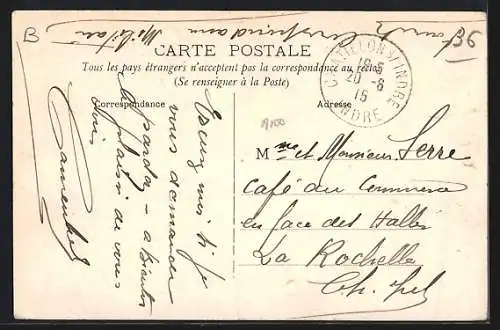 B
Correspondance Militaire
Franchise
936
CARTE POSTALE
Tous les pays étrangers n'acceptent pas la correspondance au recto
(Se renseigner à la Poste)
Correspondance
Adresse
CHATILLON S/ INDRE
18-5
20 -6
15
INDRE
A100
Excusez moi si je
vous demande
pardon - a bientôt
le plaisir de vous
voir
Mme et Monsieur Serre
Café du Commerce
en face des Halles
La Rochelle
Ch. Inf